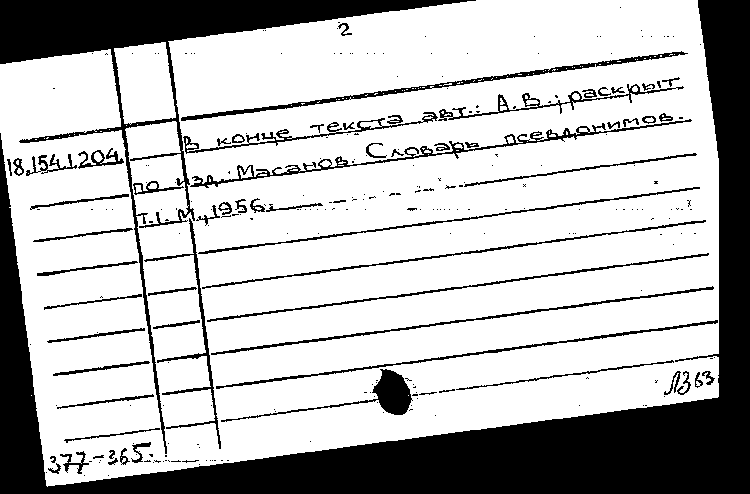 2
В конце текста авт.: А.В.; раскрыт
18.154.1.204.
по изд.: Масанов. Словарь псевдонимов.
Т.1. М., 1956.
ЛЗ 63
377-365.